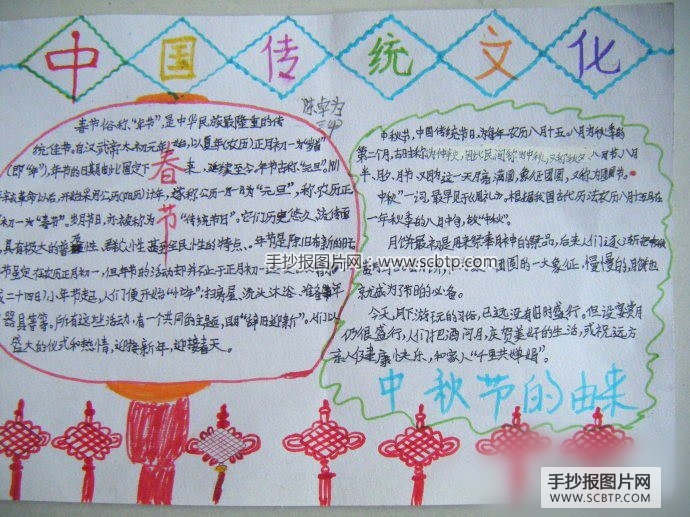 中国传统文化
陈卓为
春节
春节俗称"年节",是中华民族最隆重的传
统佳节。自汉武帝太初元年始,以夏年(农历)正月初一为"岁首"
(即"年"),年节的日期由此固定下来,延续至今。年节古称"元旦"。1911
年辛亥革命以后,开始采用公历(阳历)计年,遂称公历一月一日为"元旦",称农历正
月初一为"春节"。岁月节日,亦被称为"传统节日"。它们历史悠久、流传面
广,具有极大的普及性、群众性、甚至全民性的特点。年节是除旧布新的日
节是定在农历正月初一,但年节的活动却并不止于正月初一
二十四日)小年节起,人们便开始"忙年":扫房屋、洗头沐浴、准备年
器具等等。所有这些活动,有一个共同的主题,即"辞旧迎新"。人们以
盛大的仪式和热情,迎接新年,迎接春天。
中秋节,中国传统节日,为每年农历八月十五。八月为秋季的
第二个月,古时称为仲秋,因此民间称中秋,又称秋夕、八月节、八月
半、月夕、月节,又因为这一天月亮满圆,象征团圆,又称为团圆节。
中秋"一词,最早见于《周礼》。根据我国古代历法农历八月十五日在
一年秋季的八月中旬,故"中秋"。
月饼最初是用来祭奉月神的祭品,后来人们逐渐把
团圆的一大象征,慢慢的,月饼也
就成为了节日的必备。
今天,月下游玩的习俗,已远没有旧时盛行。但设宴赏月
仍很盛行,人们把酒问月,庆贺美好的生活,或祝远方
亲人健康快乐,和家人"千里共婵娟"。
中秋节的由来
手抄报图片网:www.scbtp.com
手抄报图片网
WWW.SCBTP.COM